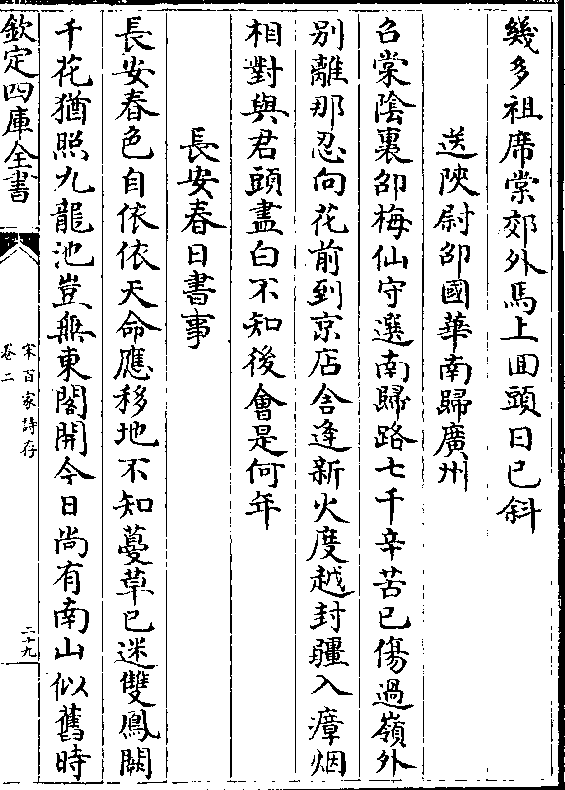 幾多祖席棠郊外馬上回頭日已斜
送陝尉邵國華南歸廣州
召棠陰裏邵梅仙守選南歸路七千辛苦已傷過嶺外
别離那忍向花前到京店舍逢新火度越封疆入瘴烟
相對與君頭盡白不知後會是何年
長安春日書事
長安春色自依依天命應移地不知蔓草已迷雙鳳闕
千花猶照九龍池豈無東閣開今日尚有南山似舊時
欽定四庫全書
宋百家詩存
卷二
二十九